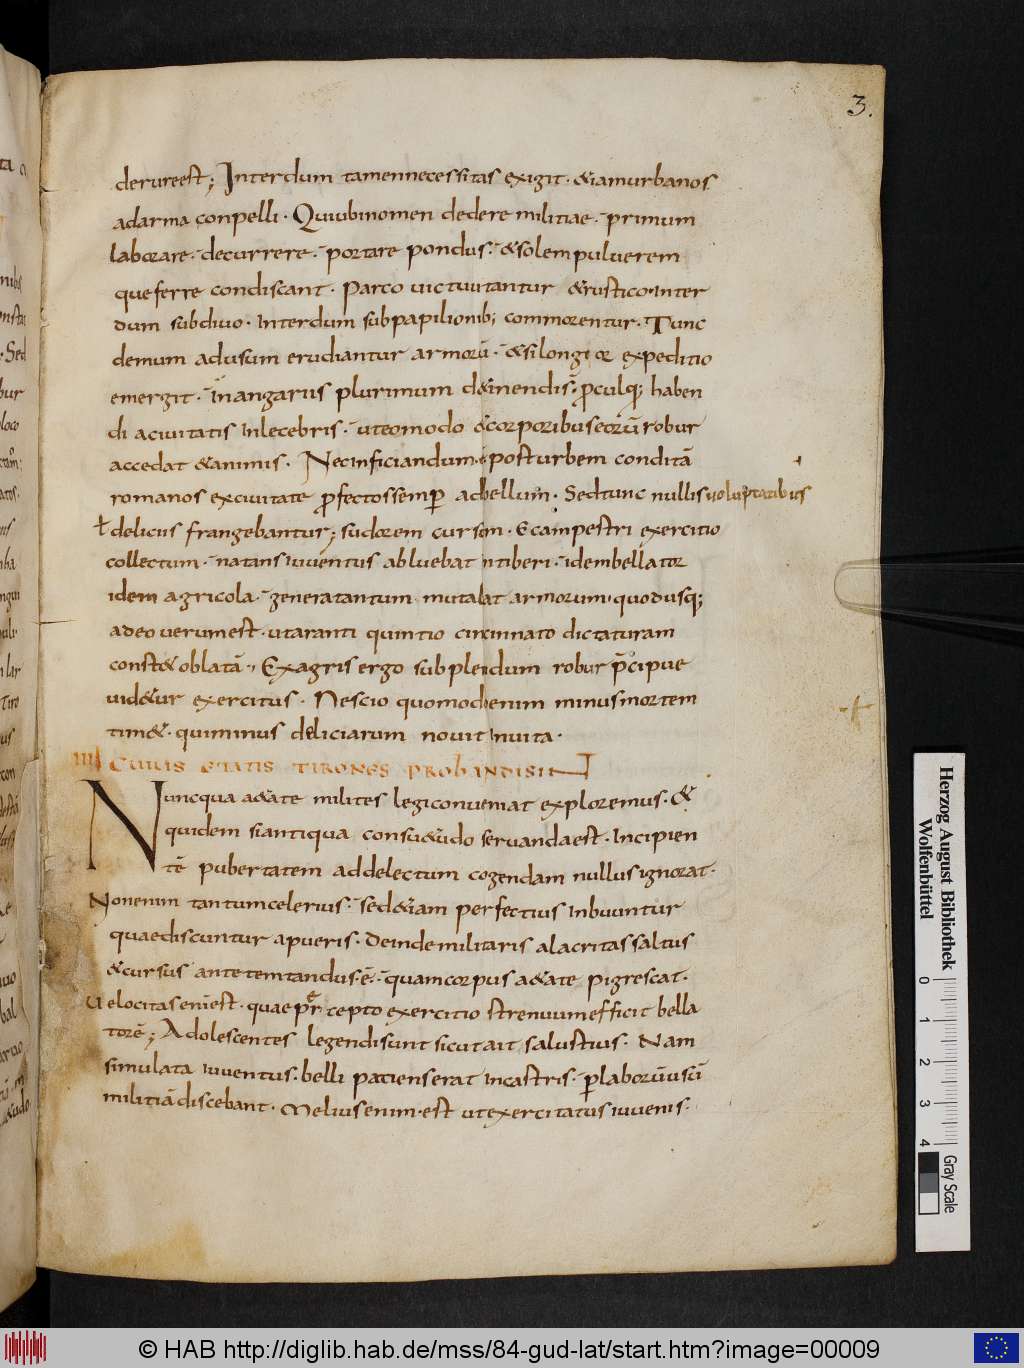 3.
dereest; Interdum tamen necessitas exigit · & iam urbanos
ad arma conpelli · Qui ubi nomen dedere militiae · primum
laborare · decurrere · portare pondus · & solem puluerem
que ferre condiscant · parco uictu utantur & rustico · inter
dum subdiuo · interdum sub papilionib; commorentur · Tunc
demum ad usum erudiantur armorū · & si longior expeditio
emergit · in angariis plurimum d&inendis · ꝓculq; haben
di a ciuitatis inlecebris · ut eo modo & corporibus eorū robur
accedat & animis · Nec inficiandum · post urbem conditā
romanos ex ciuitate ꝓfectos semꝑ ad bellum · Sed tunc nullis uoluptatibus
ł deliciis frangebantur; sudorem cursu · & campestri exercitio
collectum · natans iuuentus abluebat in tiberi · idem bellator
idem agricola · genera tantum mutabat armorum · quod usq;
adeo uerum est · ut aranti quintio cincinnato dictaturam
const& oblatā · Ex agris ergo supplendum robur p̄cipue
uid&ur exercitus · Nescio quomodo enim minus mortem
tim& · qui minus deliciarum nouit in uita ·
IIII CUIUS ETATIS TIRONES PROBANDI SINT
Nunc qua a&ate milites legi conueniat exploremus · &
quidem si antiqua consu&udo seruanda est · Incipien
tē pubertatem ad delectum cogendam nullus ignorat ·
Non enim tantum celerius · sed &iam perfectius inbuuntur
quae discuntur a pueris · Deinde militaris alacritas saltus
& cursus ante temtandus · ē · quam corpus a&ate pigrescat ·
Uelocitas enī est · quae percepto exercitio strenuum efficit bella
torē; Adolescentes legendi sunt sicut ait salustius · Nam
simul ata iuuentus · belli patiens erat in castris · ꝑ laborū usū
militiā discebant · Melius enim · est ut exercitatus iuuenis ·
Herzog August Bibliothek
Wolfenbüttel
0 1 2 3 4
Gray Scale
© HAB http://diglib.hab.de/mss/84-gud-lat/start.htm?image=00009